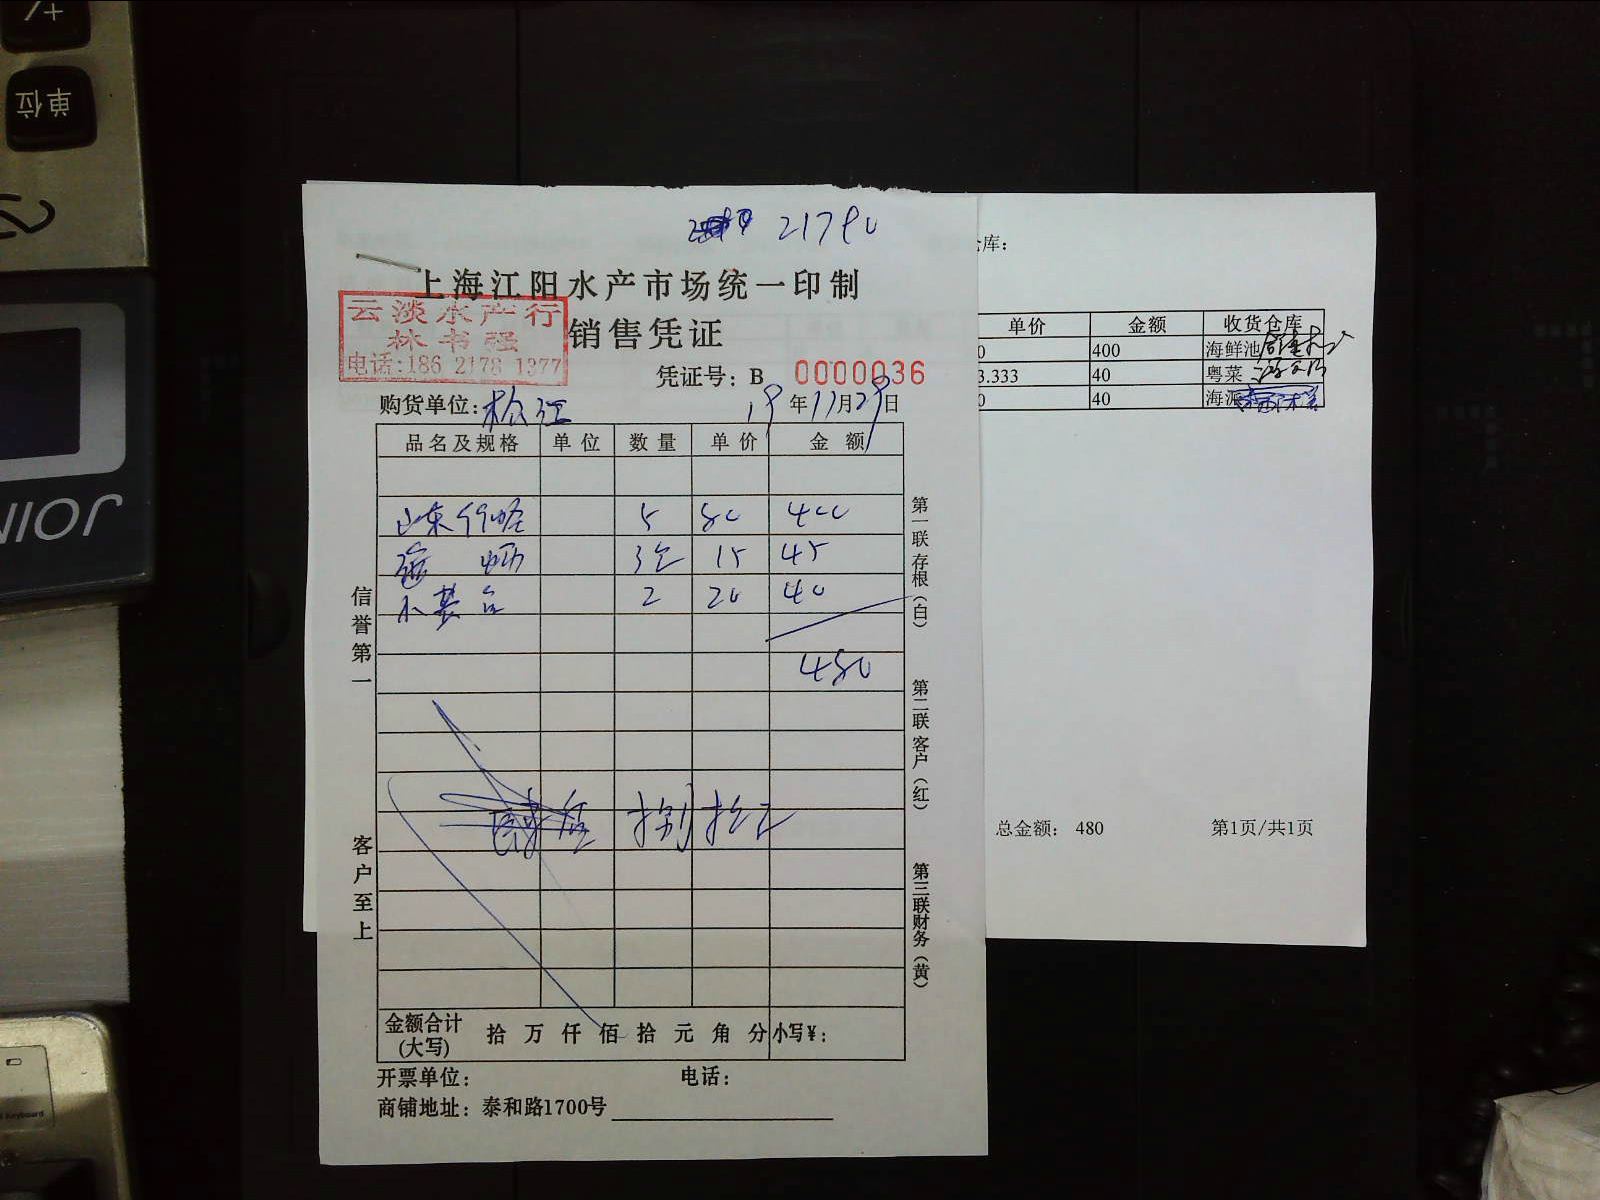 +/-
单位
JOIN
21790
上海江阳水产市场统一印制
云淡水产行
林书强
电话:186 2178 1377
销售凭证
凭证号: B 0000036
购货单位: 松江 19年11月29日
品名及规格 单位 数量 单价 金额
山东 5 80 400
3 15 45
小 2 20 40
480
捌拾元
信誉第一
客户至上
第一联存根(白)
第二联客户(红)
第三联财务(黄)
金额合计(大写) 拾 万 仟 佰 拾 元 角 分 小写¥:
开票单位: 电话:
商铺地址: 泰和路1700号
仓库:
单价 金额 收货仓库
0 400 海鲜池
3.333 40 粤菜
0 40 海派
总金额: 480 第1页/共1页